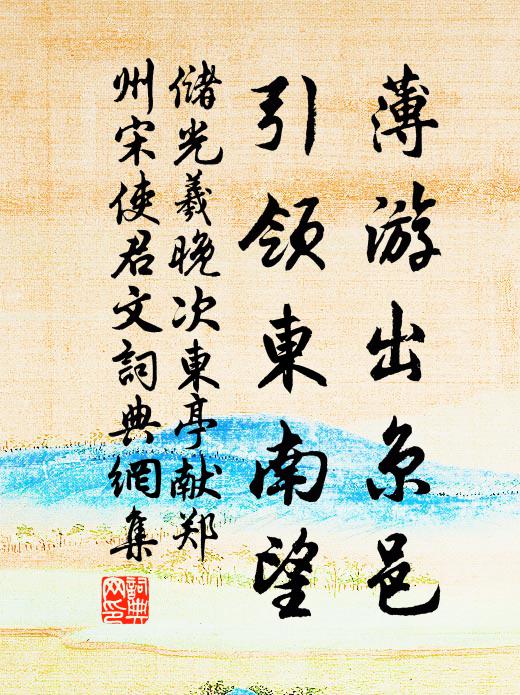 薄游出京邑
引領東南望
儲光羲晚次東亭献郑
州宋使君文詞典網集
詞典
网印